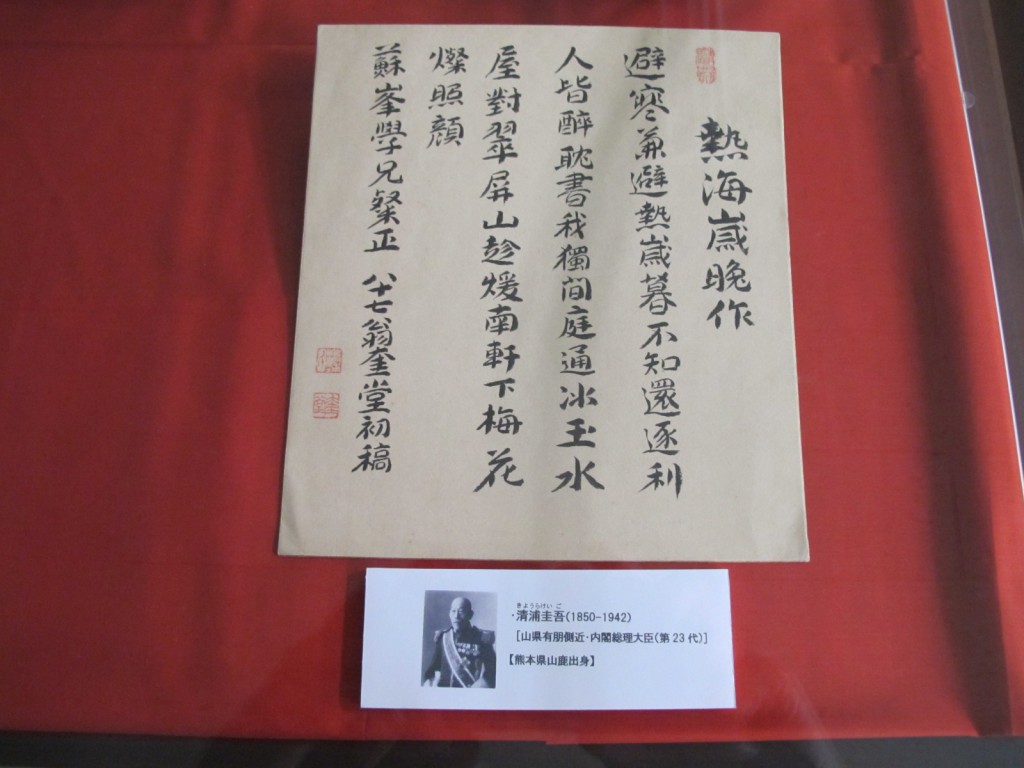 熱海歳晩作
避寒兼避熱歳暮不知還逐利
人皆醉耽書我獨間庭通冰玉水
屋對翠屏山趁煖南軒下梅花
燦照顔
蘇峯學兄粲正 八十七翁奎堂初稿
きようらけいご
・清浦圭吾(1850-1942)
[山県有朋側近・内閣総理大臣(第23代)]
【熊本県山鹿出身】